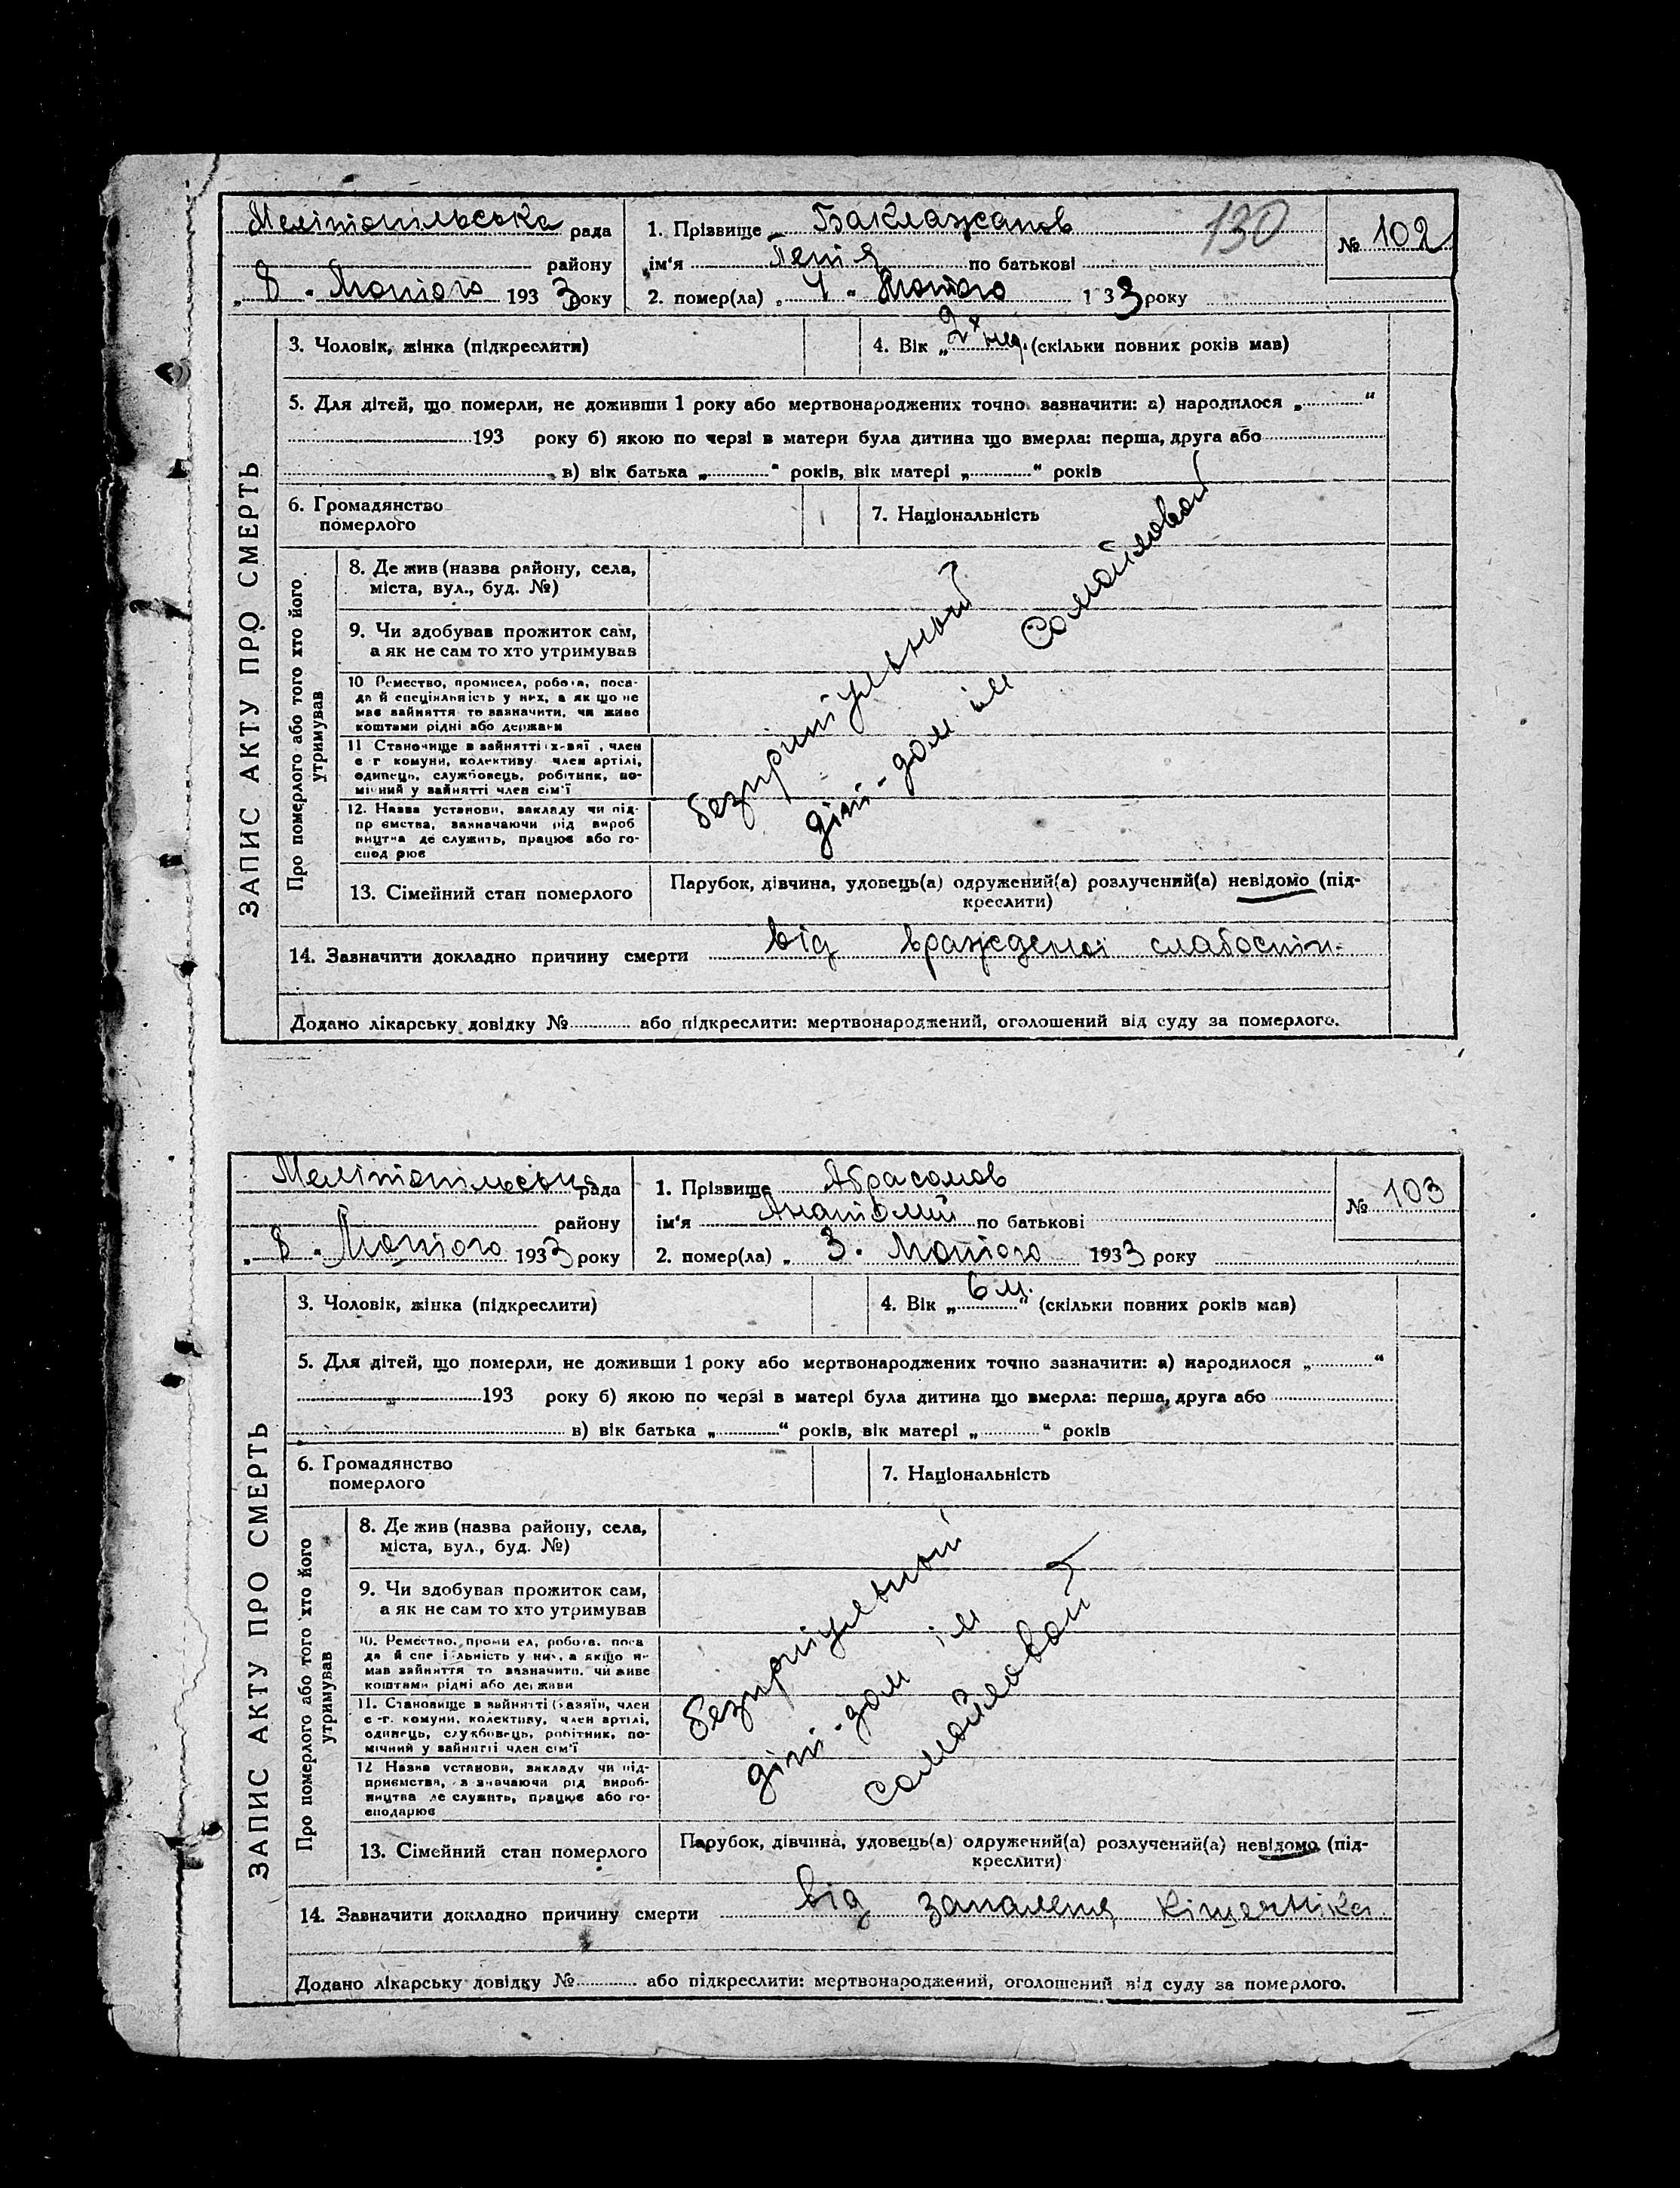 Мелітопільська рада
1. Прізвище Баклажанов
130
№ 102
району
ім'я Петя по батькові
„ 8 " Лютого 1933 року
2. помер(ла) „ 4 " Лютого 1 33 року
ЗАПИС АКТУ ПРО СМЕРТЬ
3. Чоловік, жінка (підкреслити)
4. Вік „ 2х нед. (скільки повних років мав)
5. Для дітей, що померли, не доживши 1 року або мертвонароджених точно зазначити: а) народилося „ “
193 року б) якою по черзі в матери була дитина що вмерла: перша, друга або
в) вік батька „ “ років, вік матері „ “ років
6. Громадянство
померлого
7. Національність
Про померлого або того хто його
утримував
8. Де жив (назва району, села,
міста, вул., буд. №)
9. Чи здобував прожиток сам,
а як не сам то хто утримував
10 Ремество, промисел, робота, поса-
да й спеціяльність у них, а як що не
має зайняття то зазначити, чи живе
коштами рідні або держави
11 Становище в зайнятті х-яї , член
с г комуни, колективу член артілі,
одинець, службовець, робітник, по-
мічний у зайнятті член сім'ї
12. Назва установи, закладу чи під-
пр ємства, зазначаючи рід вироб
ництва де служить, працює або го-
спод рює
безпритульный
діти-дом ім Самойловой
13. Сімейний стан померлого
Парубок, дівчина, удовець(а) одружений(а) розлучений(а) невідомо (під-
креслити)
14. Зазначити докладно причину смерти від вражденої слабости
Додано лікарську довідку № або підкреслити: мертвонароджений, оголошений від суду за померлого.
Мелітопільська рада
1. Прізвище Абрасомов
№ 103
району
ім'я Анатолий по батькові
„ 8 " Лютого 1933 року
2. помер(ла) „ 3 " Лютого 1933 року
ЗАПИС АКТУ ПРО СМЕРТЬ
3. Чоловік, жінка (підкреслити)
4. Вік „ 6 м. “ (скільки повних років мав)
5. Для дітей, що померли, не доживши 1 року або мертвонароджених точно зазначити: а) народилося „ “
193 року б) якою по черзі в матері була дитина що вмерла: перша, друга або
в) вік батька „ “ років, вік матері „ “ років
6. Громадянство
померлого
7. Національність
Про померлого або того хто його
утримував
8. Де жив (назва району, села,
міста, вул., буд. №)
9. Чи здобував прожиток сам,
а як не сам то хто утримував
10. Ремество, проми ел, робота, поса
да й спе і льність у них, а якщо н-
мав зайняття то зазначити, чи живе
коштами рідні або держави
11. Становище в зайнятті (хазяїн, член
с -г. комуни, колективу, член артілі,
одинець, службовець, робітник, по-
мічний у зайнятті член сім'ї
12 Назва установи, закладу чи під-
приємства, з значаючи рід вироб-
ництва де служить, працює або го-
сподарює
безпритульный
діти-дом ім
Самойловой
13. Сімейний стан померлого
Парубок, дівчина, удовець(а) одружений(а) розлучений(а) невідомо (під-
креслити)
14. Зазначити докладно причину смерти від запаленя кішечніка
Додано лікарську довідку № або підкреслити: мертвонароджений, оголошений від суду за померлого.